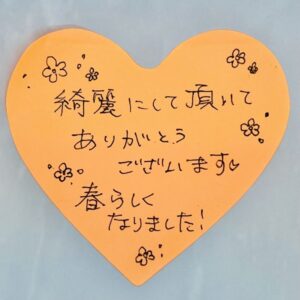 綺麗にして頂いて
ありがとう
ございます♡
春らしく
なりました！